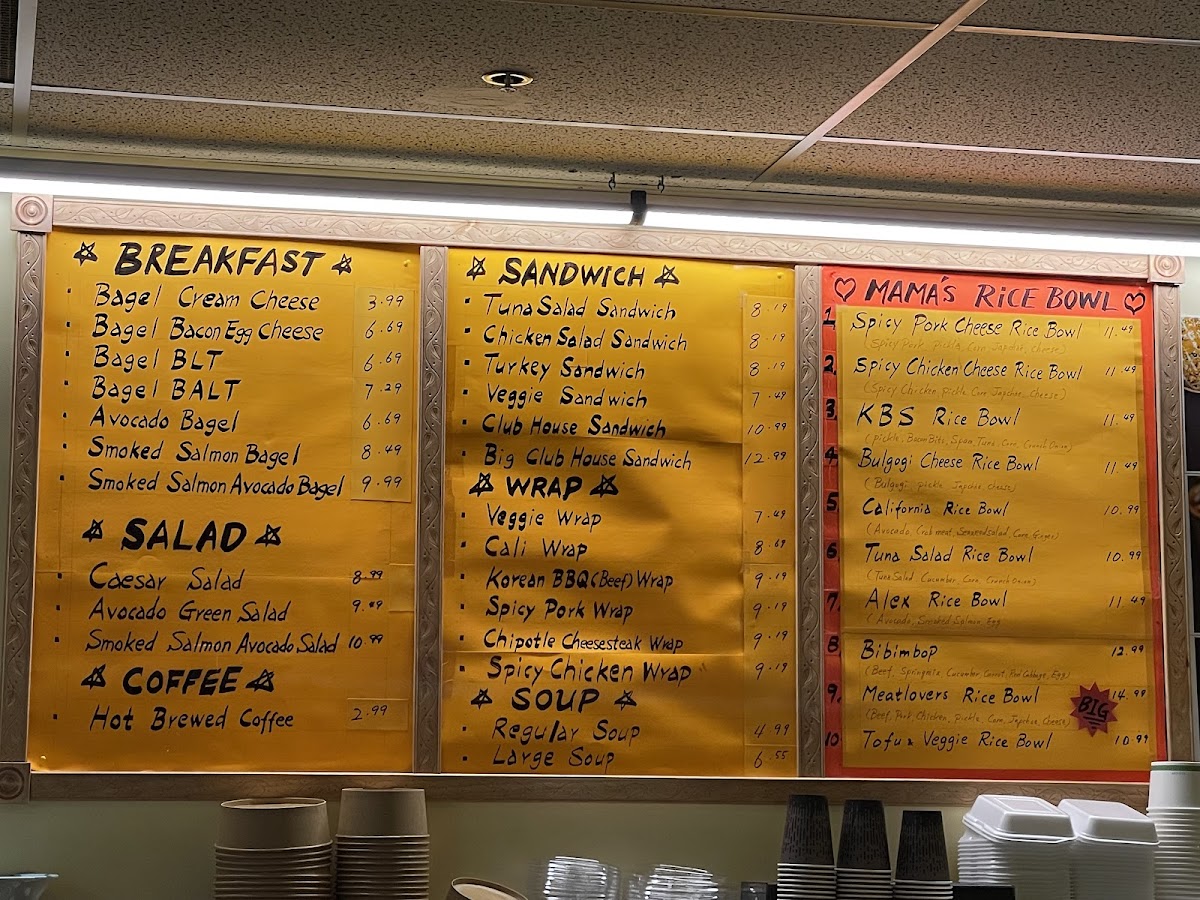 BREAKFAST
Bagel Cream Cheese 3.99
Bagel Bacon Egg Cheese 6.69
Bagel BLT 6.69
Bagel BALT 7.29
Avocado Bagel 6.69
Smoked Salmon Bagel 8.49
Smoked Salmon Avocado Bagel 9.99
SALAD
Caesar Salad 8.99
Avocado Green Salad 9.49
Smoked Salmon Avocado Salad 10.99
COFFEE
Hot Brewed Coffee 2.99
SANDWICH
Tuna Salad Sandwich 8.19
Chicken Salad Sandwich 8.19
Turkey Sandwich 8.19
Veggie Sandwich 7.49
Club House Sandwich 10.99
Big Club House Sandwich 12.99
WRAP
Veggie Wrap 7.49
Cali Wrap 8.69
Korean BBQ (Beef) Wrap 9.19
Spicy Pork Wrap 9.19
Chipotle Cheesesteak Wrap 9.19
Spicy Chicken Wrap 9.19
SOUP
Regular Soup 4.99
Large Soup 6.55
MAMA'S RICE BOWL
1. Spicy Pork Cheese Rice Bowl 11.49
(Spicy Pork, Pickle, Corn, Japchae, Cheese)
2. Spicy Chicken Cheese Rice Bowl 11.49
(Spicy Chicken, Pickle, Corn, Japchae, Cheese)
3. KBS Rice Bowl 11.49
(Pickle, Bacon Bits, Spam, Tuna, Corn, Crunch Onion)
4. Bulgogi Cheese Rice Bowl 11.49
(Bulgogi, Pickle, Japchae, Cheese)
5. California Rice Bowl 10.99
(Avocado, Crab meat, Seaweed Salad, Corn, Ginger)
6. Tuna Salad Rice Bowl 10.99
(Tuna Salad, Cucumber, Corn, Crunch Onion)
7. Alex Rice Bowl 11.49
(Avocado, Smoked Salmon, Egg
8. Bibimbop 12.99
(Beef, Springmix, Cucumber, Carrot, Red Cabbage, Egg)
9. Meatlovers Rice Bowl 14.99
(Beef, Pork, Chicken, Pickle, Corn, Japchae, Cheese)
BIG
10 Tofu & Veggie Rice Bowl 10.99